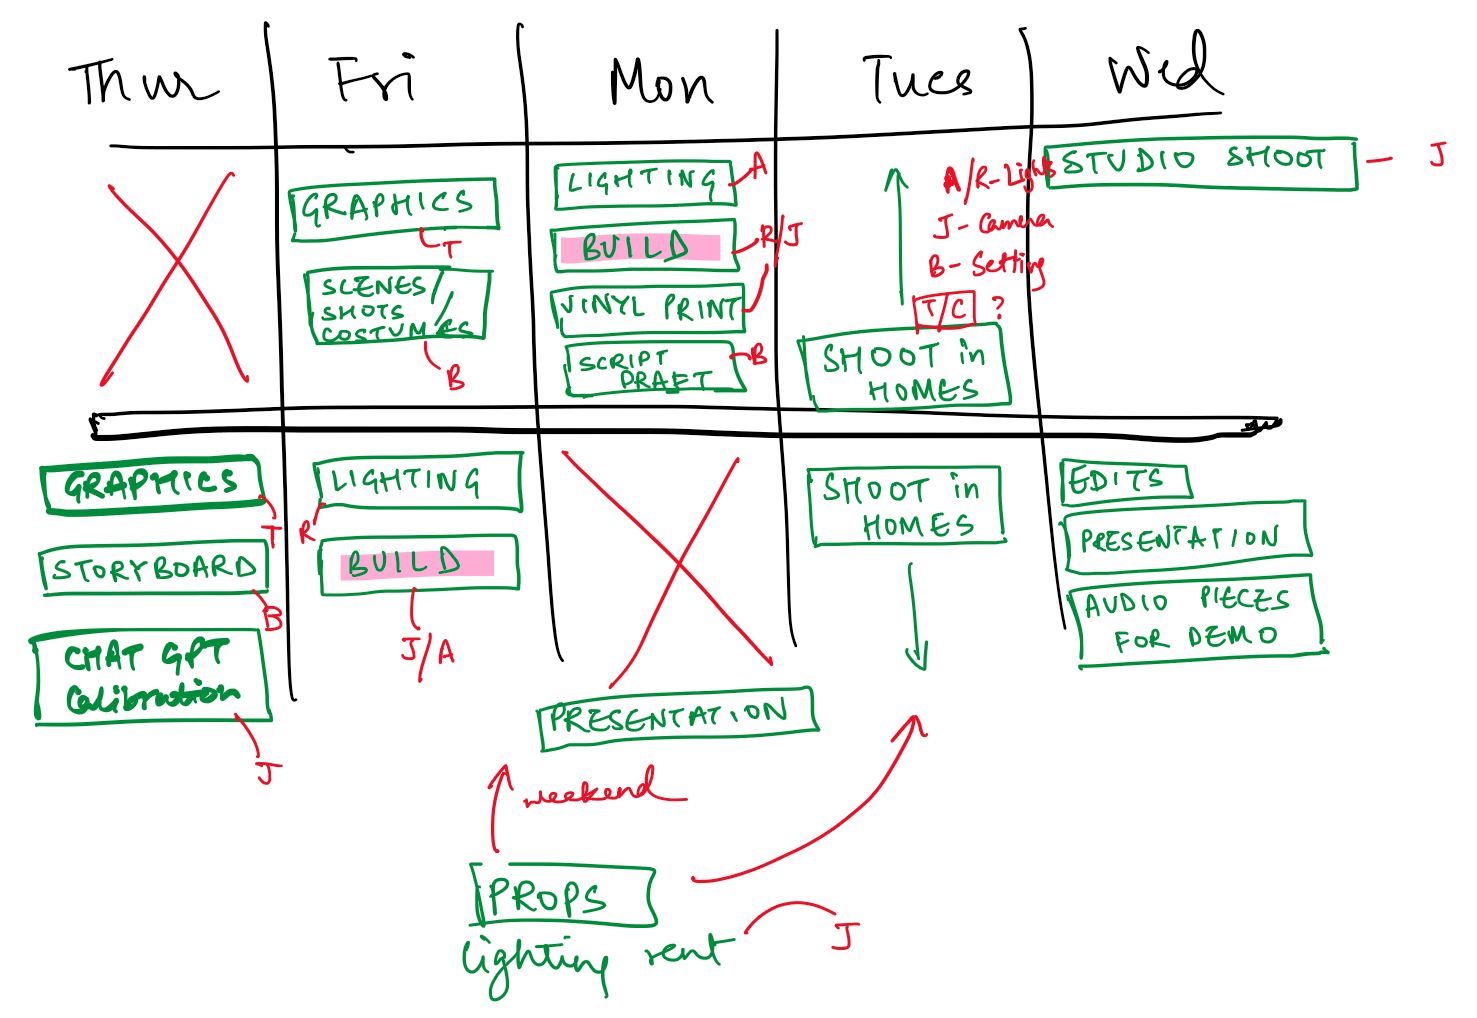 Thur Fri Mon Tues Wed
GRAPHICS
T
SCENES/
SHOTS /
COSTUMES
B
LIGHTING A
BUILD R/J
VINYL PRINT
SCRIPT B
DRAFT
A/R-Lights
J-Camera
B-Setting
T/C ?
SHOOT in
HOMES
STUDIO SHOOT - J
GRAPHICS
T
STORYBOARD
B
CHAT GPT
Calibration
J
LIGHTING
R
BUILD
J/A
PRESENTATION
weekend
SHOOT in
HOMES
EDITS
PRESENTATION
AUDIO PIECES
FOR DEMO
PROPS
lighting rent J